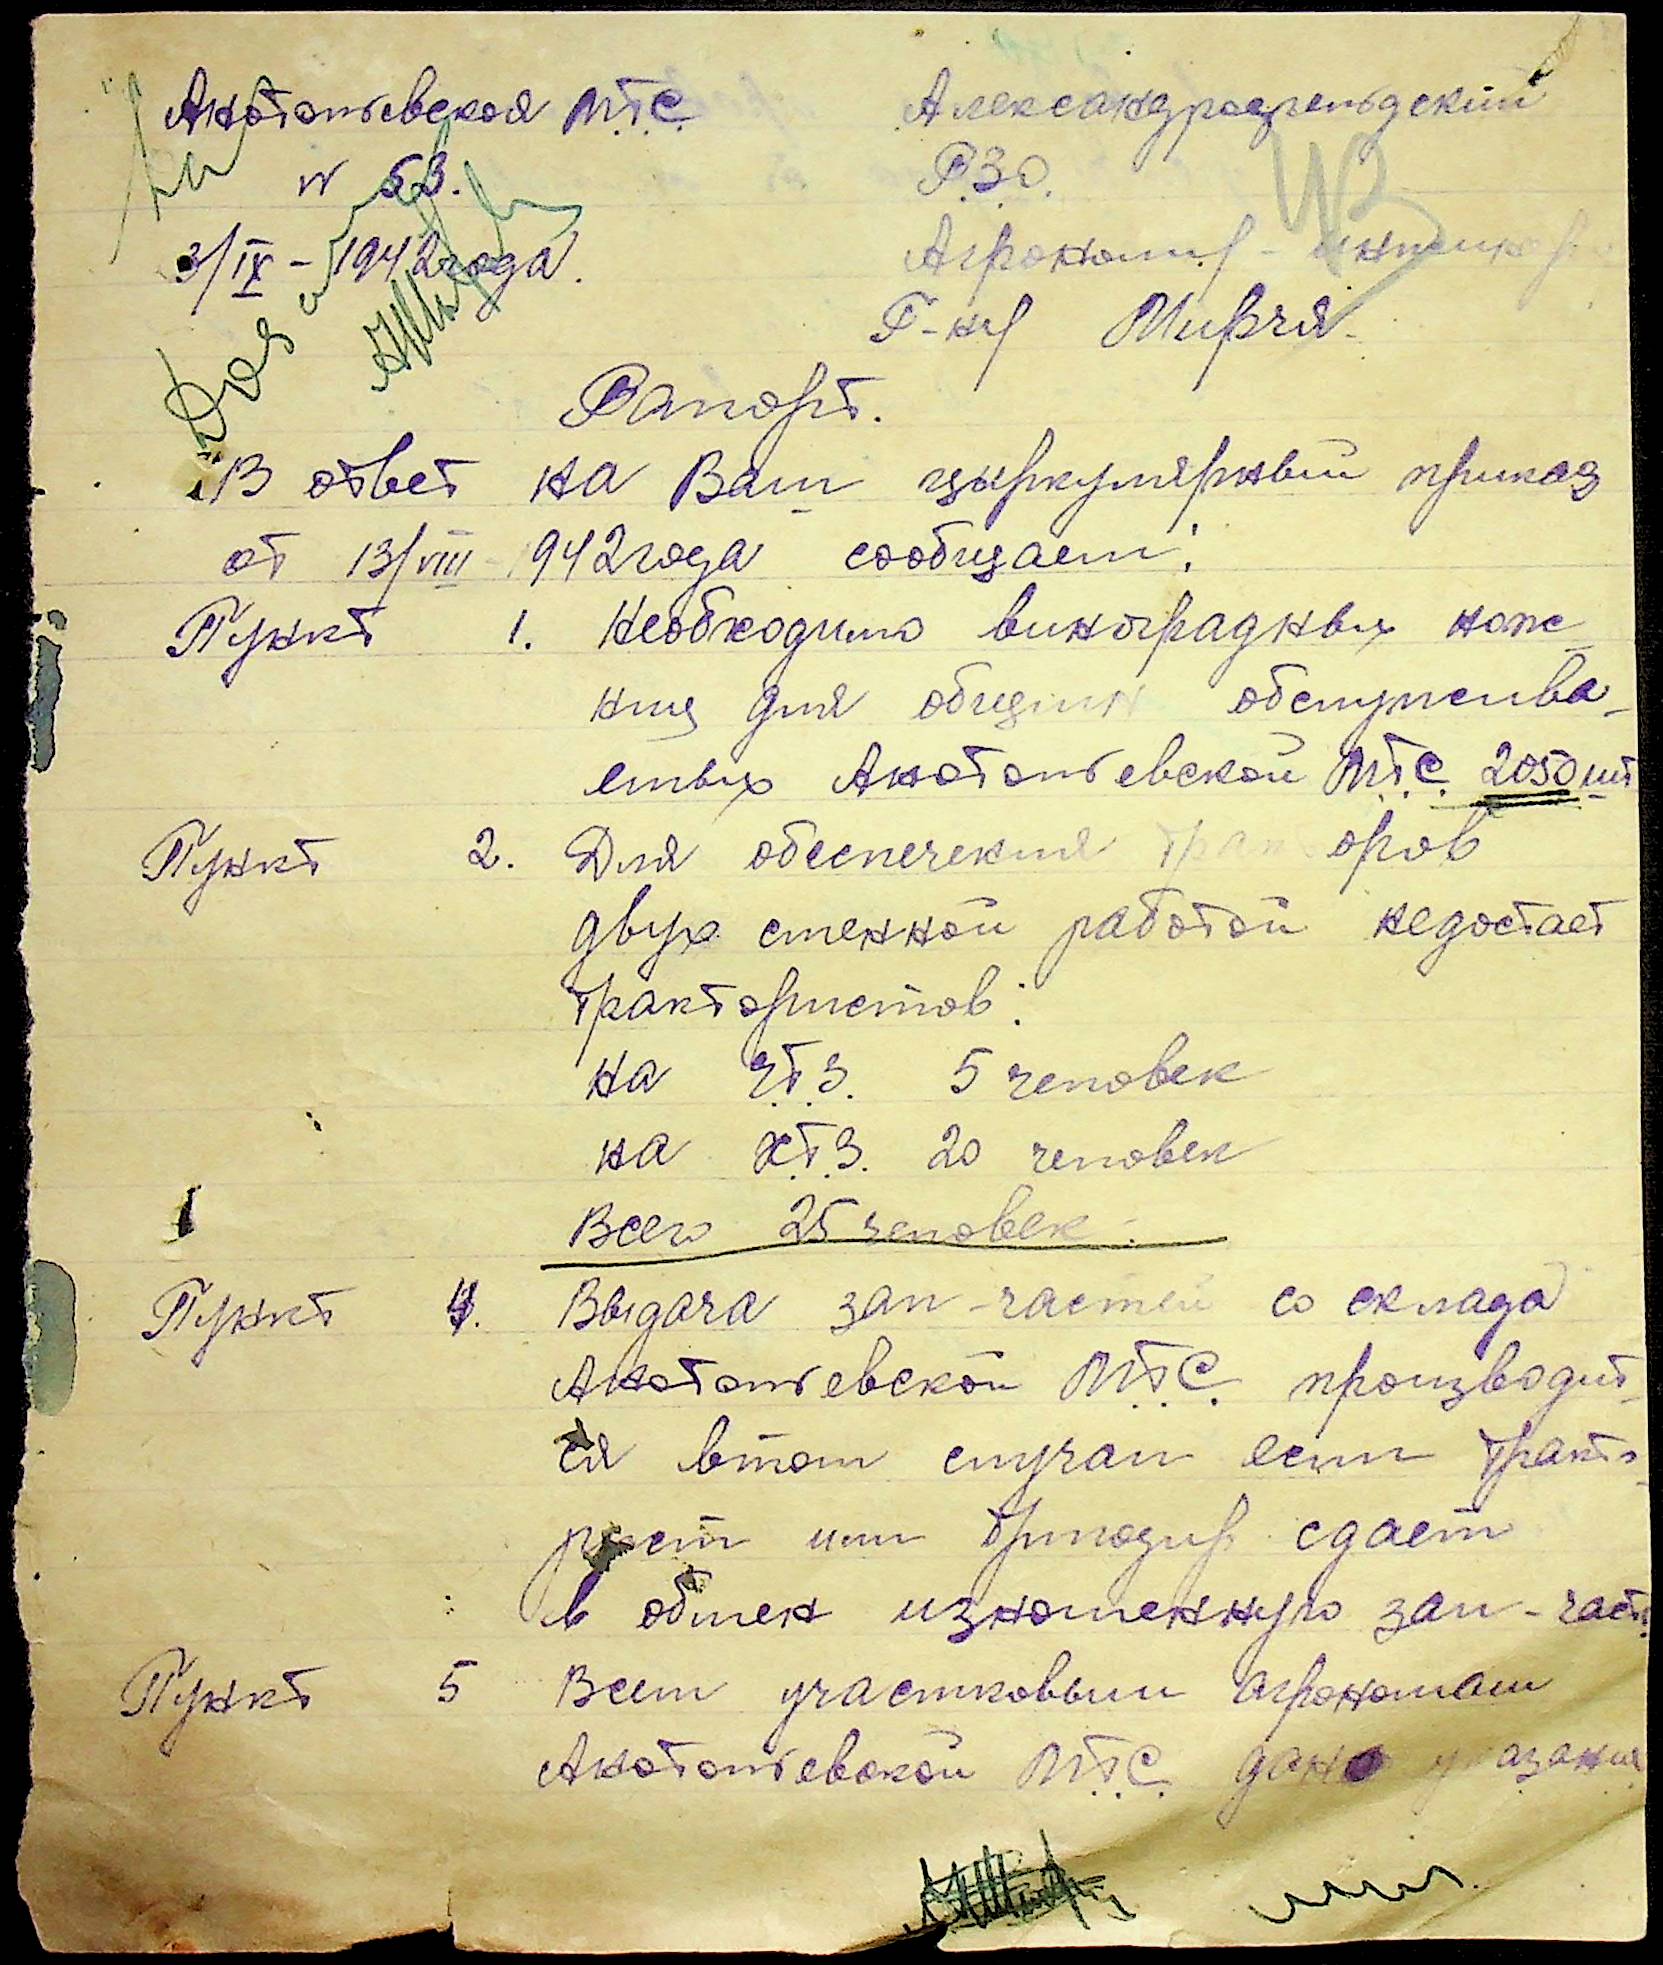 Анатольевская М.Т.С.
Александрфельдский
N 53.
Р.З.О.
3/IX - 1942 года.
Агроному - инженеру
Г-ну Мирча.
Рапорт.
В ответ на Ваш циркулярный приказ
от 13/VIII 1942 года сообщаем:
Пункт 1. Необходимо виноградных нож-
ниц для общин обслужива-
емых Анатольевской М.Т.С. 2050 шт
Пункт 2. Для обеспечения тракторов
двух сменной работой недостает
трактористов:
на Ч.Т.З. 5 человек
на Х.Т.З. 20 человек
Всего 25 человек.
Пункт 4. Выдача зап-частей со склада
Анатольевской М.Т.С. производит-
ся втом случаи если тракто-
рист или бригадир сдает
в обмен изношенную зап-часть.
Пункт 5 Всем участковым агрономам
Анатольевской М.Т.С. дано указания